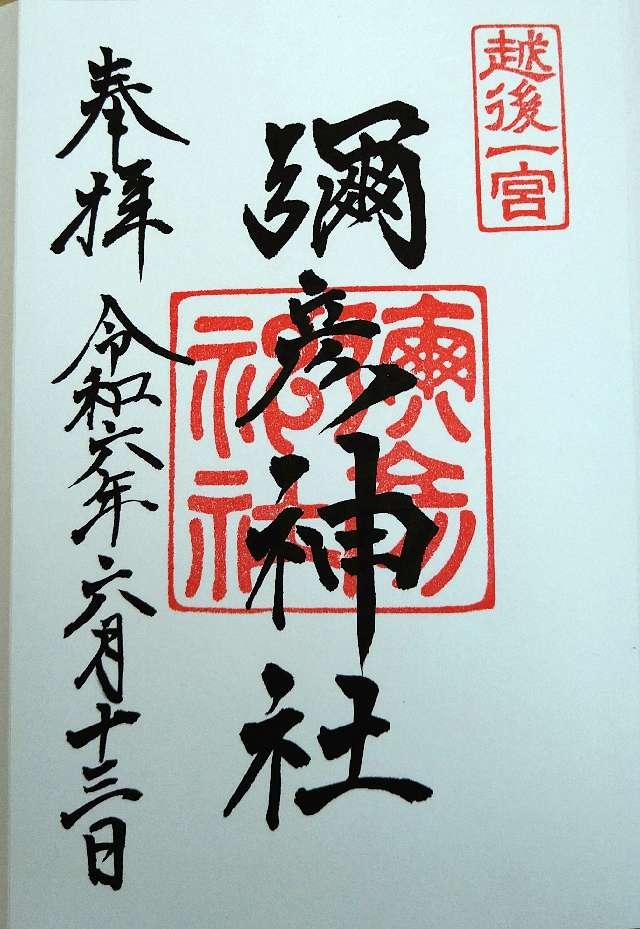 越後一宮
彌彦神社
奉拝 令和六年六月十三日